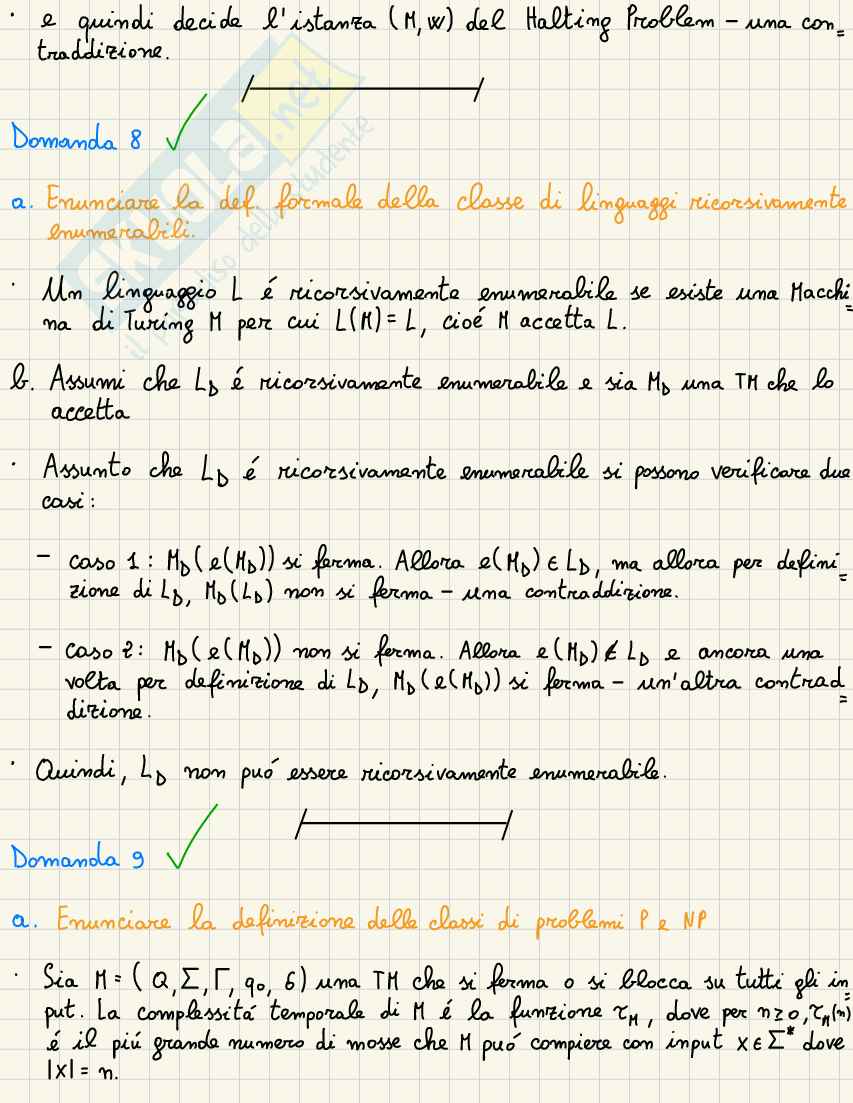 · e quindi decide l'istanza (M,w) del Halting Problem - una con=
traddizione.
Domanda 8
a. Enunciare la def. formale della classe di linguaggi ricorsivamente
enumerabili.
· Un linguaggio L é ricorsivamente enumerabile se esiste una Macchi=
na di Turing M per cui L(M)= L, cioé M accetta L.
b. Assumi che L_D é ricorsivamente enumerabile e sia M_D una TM che lo
accetta
· Assunto che L_D é ricorsivamente enumerabile si possono verificare due
casi:
- caso 1: M_D(e(M_D)) si ferma. Allora e(M_D) ∈ L_D, ma allora per defini=
zione di L_D, M_D(L_D) non si ferma - una contraddizione.
- caso 2: M_D(e(M_D)) non si ferma. Allora e(M_D) ∉ L_D e ancora una
volta per definizione di L_D, M_D(e(M_D)) si ferma - un'altra contrad=
dizione.
· Quindi, L_D non puó essere ricorsivamente enumerabile.
Domanda 9
a. Enunciare la definizione delle classi di problemi P e NP
· Sia M = (Q,Σ,Γ, q₀, δ) una TM che si ferma o si blocca su tutti gli in=
put. La complessitá temporale di M é la funzione τ_M, dove per n≥0, τ_M(n)
é il piú grande numero di mosse che M puó compiere con input x ∈ Σ* dove
|x| = n.
SKUOLA.net
il paradiso dello studente